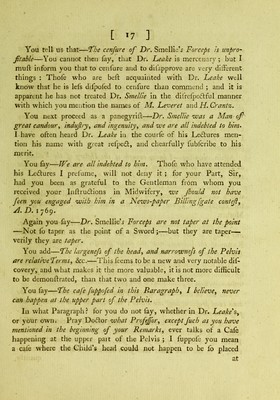 [ 17 ]
You tell us that—The censure of Dr. Smellie's Forceps is unpro-
fitable—You cannot then say, that Dr. Leake is mercenary; but I
must inform you that to censure and to disapprove are very different
things: Those who are best acquainted with Dr. Leake well
know that he is less disposed to censure than commend; and it is
apparent he has not treated Dr. Smellie in the disrespectful manner
with which you mention the names of M. Leveret and H. Crantz.
You next proceed as a panegyrist—Dr. Smellie was a Man of
great candour, industry, and ingenuity, and we are all indebted to him.
I have often heard Dr. Leake in the course of his Lectures men-
tion his name with great respect, and chearfully subscribe to his
merit.
You say—We are all indebted to him. Those who have attended
his Lectures I presume, will not deny it; for your Part, Sir,
had you been as grateful to the Gentleman from whom you
received your Instructions in Midwifery, we should not have
seen you engaged with him in a News-paper Billingsgate contest,
A. D. 1769.
Again you say—Dr. Smellie's Forceps are not taper at the point
—Not so taper as the point of a Sword;—but they are taper—
verily they are taper.
You add—The largeness of the head, and narrowness of the Pelvis
are relative Terms, &c.—This seems to be a new and very notable dis-
covery, and what makes it the more valuable, it is not more difficult
to be demonstrated, than that two and one make three.
You say—The case supposed in this Paragraph, I believe, never
can happen at the upper part of the Pelvis.
In what Paragraph? for you do not say, whether in Dr. Leake's,
or your own. Pray Doctor what Professor, except such as you have
mentioned in the beginning of your Remarks, ever talks of a Case
happening at the upper part of the Pelvis; I suppose you mean
a case where the Child's head could not happen to be so placed
at